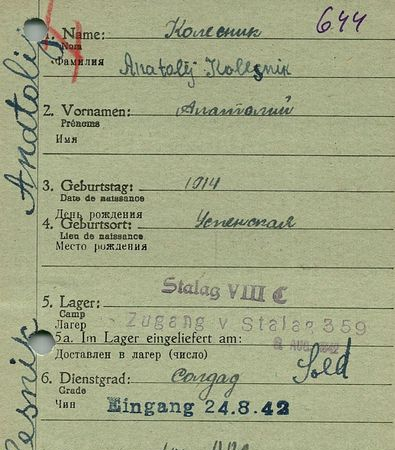 644
1. Name: Колесник
Nom
Фамилия
Anatolij Kolesnik
2. Vornamen: Анатолий
Prénoms
Имя
3. Geburtstag: 1914
Date de naissance
День рождения
4. Geburtsort: Успенская
Lieu de naissance
Место рождения
Stalag VIII C
5. Lager:
Camp
Лагер
Zugang v Stalag 359
5a. Im Lager eingeliefert am: 8 AUG. 1942
Доставлен в лагер (число)
6. Dienstgrad: Солдад Sold
Grade
Чин
Eingang 24.8.42
Anatolij